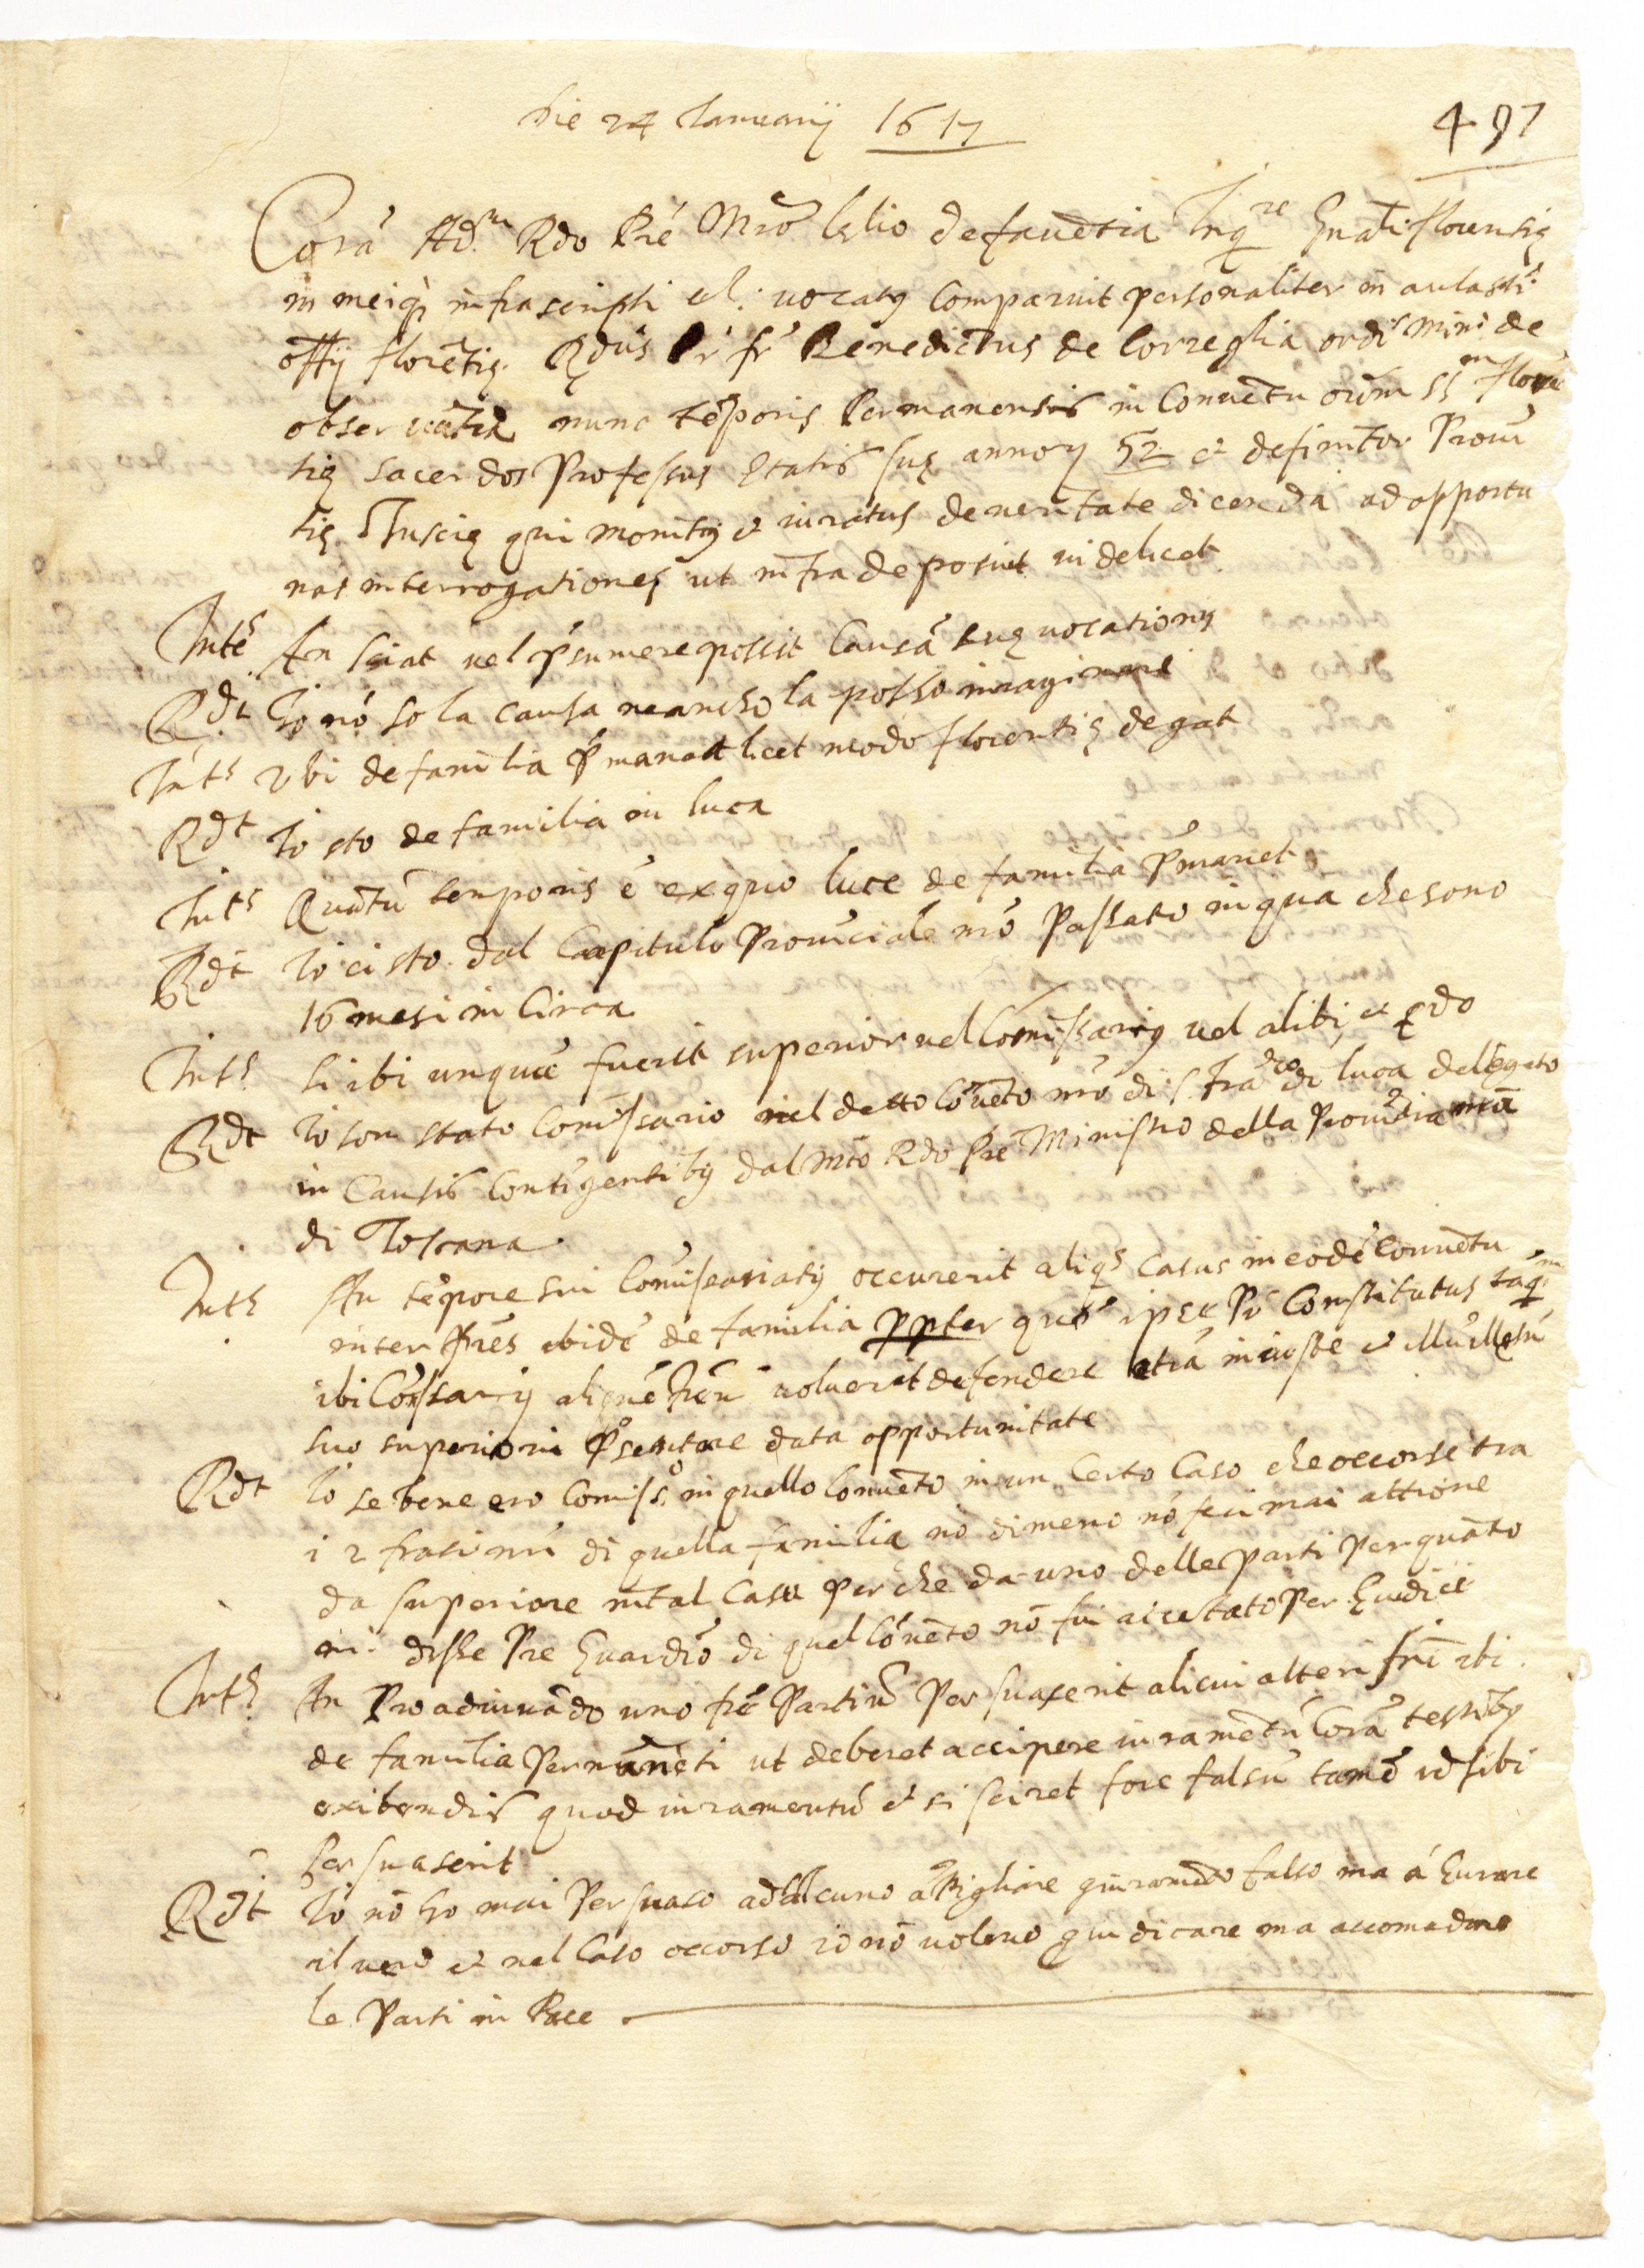 Die 24 Ianuarij 1617
497
Corã Ad.m Rdo Prẽ Mro Lelio de favẽtia Inq.re Gñali florentię
in meiq; infrascripti etc. vocatus Comparuit personaliter in aula sti
offij florẽtię. Rdus Pr fr Benedictus de Correglia ordis Mini de
observãtia nunc tẽporis Permanensis in Convẽtu oĩum SS.m florẽ
tię sacerdos Professus etatis suę annorũ 52 et definitor Provi
tię Thuscię qui monitus et iuratus de veritate dicenda ad opportu
nas interrogationes ut infra deposuit videlicet
Ints An sciat vel p̃sumere possit Causã suę vocationis
Rdt Io nõ so la causa neancho la posso imaginare
Ints Ubi de familia p̃maneat licet modo florentię degat
Rdt Io sto de familia in luca
Ints Quãtũ temporis ẽ ex quo luce de familia p̃manet
Rdt Io ci sto dal Capitulo Provĩciale nrõ Passato in qua che sono
16 mesi in Circa
Ints Si ibi unquã fuerit superior vel Comissarius vel alibi, et qdo
Rdt Io son stato Comissario nel detto Cõvẽto nrõ di S. Frãco di luca dellegato
in Causis Contĩgentibus dal Mto Rdo Prẽ Ministro della Provĩtia nrã
di Toscana
Ints An tẽpore sui Comiseariatus occurerit aliqs casus in eodẽ Convẽtu
inter frẽs ibidẽ de familia p̱pter quẽ ipse Pr Constitutus taq.m
ibi Cõissarius aliquẽ frẽm voluerit defendere etiã iniuste et illũ illesũ
suo superiori p̃sentare data opportunitate
Rdt Io se bene ero Comiss.o in quello Convẽto in un Certo Caso che occorse tra
i 2 frati nri di quella familia nõdimeno nõ feci mai attione
da superiore in tal Caso perche da uno delle Parti Per quãto
mi disse Pre Guardiõ di quel Cõvẽto nõ fui accetato Per Giudice
Ints An Pro adiuvãdo uno frẽ Partiũ Persuaserit alicui alteri fri ibi
de familia Permanẽti ut deberet accipere iuramẽtũ Corã testibus
exibendis quod iuramentũ et si sciret fore falsũ tamẽ id sibi
Persuaserit
Rdt Io nõ ho mai Persuaso ad alcuno a Pigliare giuramẽto falso ma á Gurare
il vero et nel Caso occorso io nõ volevo giudicare ma accomodare
le Parti in Pace